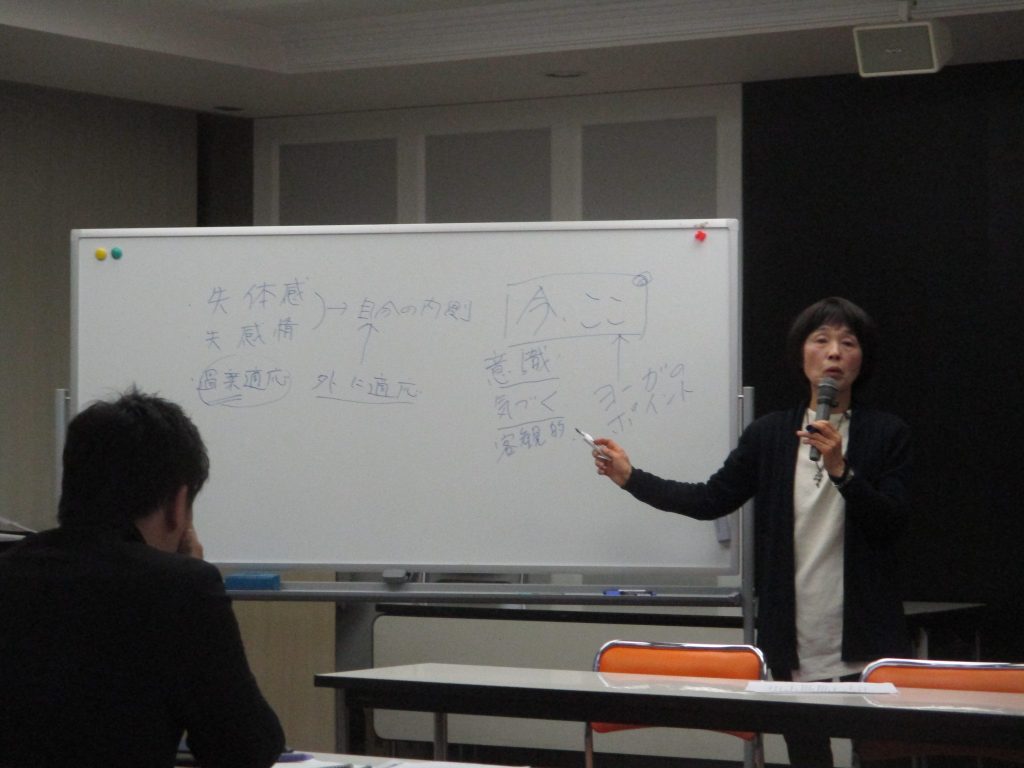 失体感
失感情
→自分の内側
過剰適応
外に適応
今、ここ
意識
気づく
客観的
ヨーガの
ポイント